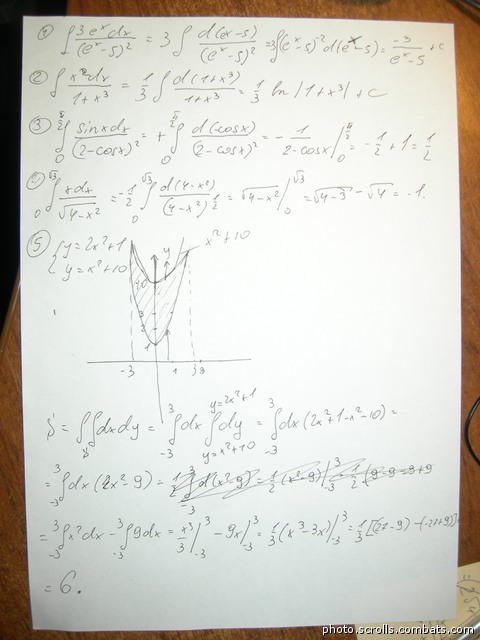 ① ∫ 3e^x dx / (e^x-5)^2 = 3 ∫ d(e^x-5) / (e^x-5)^2 = 3∫(e^x-5)^-2 d(e^x-5) = -3 / e^x-5 + c
② ∫ x^2 dx / 1+x^3 = 1/3 ∫ d(1+x^3) / 1+x^3 = 1/3 ln|1+x^3| + c
③ ∫_0^{π/2} sinx dx / (2-cosx)^2 = + ∫_0^{π/2} d(-cosx) / (2-cosx)^2 = - 1 / 2-cosx |_0^{π/2} = - 1/2 + 1 = 1/2
∫_0^{√3} xdx / √4-x^2 = - 1/2 ∫_0^{√3} d(4-x^2) / (4-x^2)^{1/2} = √4-x^2 |_0^{√3} = √4-3 - √4 = -1.
⑤ { y=2x^2+1
y=x^2+10
x^2+10
y
10
3
2
1
-3 1 3
y=2x^2+1
S = ∫∫_S dxdy = ∫_{-3}^3 dx ∫ dy = ∫_{-3}^3 dx (2x^2+1-x^2-10) =
y=x^2+10
= ∫_{-3}^3 dx (x^2-9) = 1/2 ∫_{-3}^3 d(x^2-9) = 1/2 (x^2-9) |_{-3}^3 = 1/2
= ∫_{-3}^3 x^2 dx - ∫_{-3}^3 9dx = x^3/3 |_{-3}^3 - 9x |_{-3}^3 = 1/3 (x^3-3x) |_{-3}^3 = 1/3 [(27-9) - (-27+9)]
= 6.
photo.scrolls.combats.com